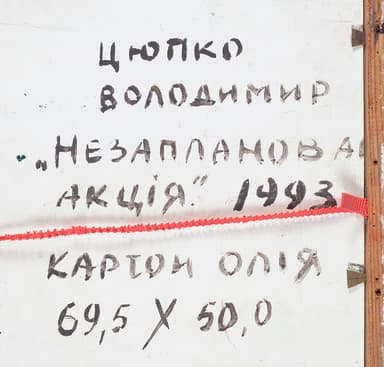 ЦЮПКО
ВОЛОДИМИР
„НЕЗАПЛАНОВА
АКЦІЯ." 1993
КАРТОН ОЛІЯ
69,5 X 50,0